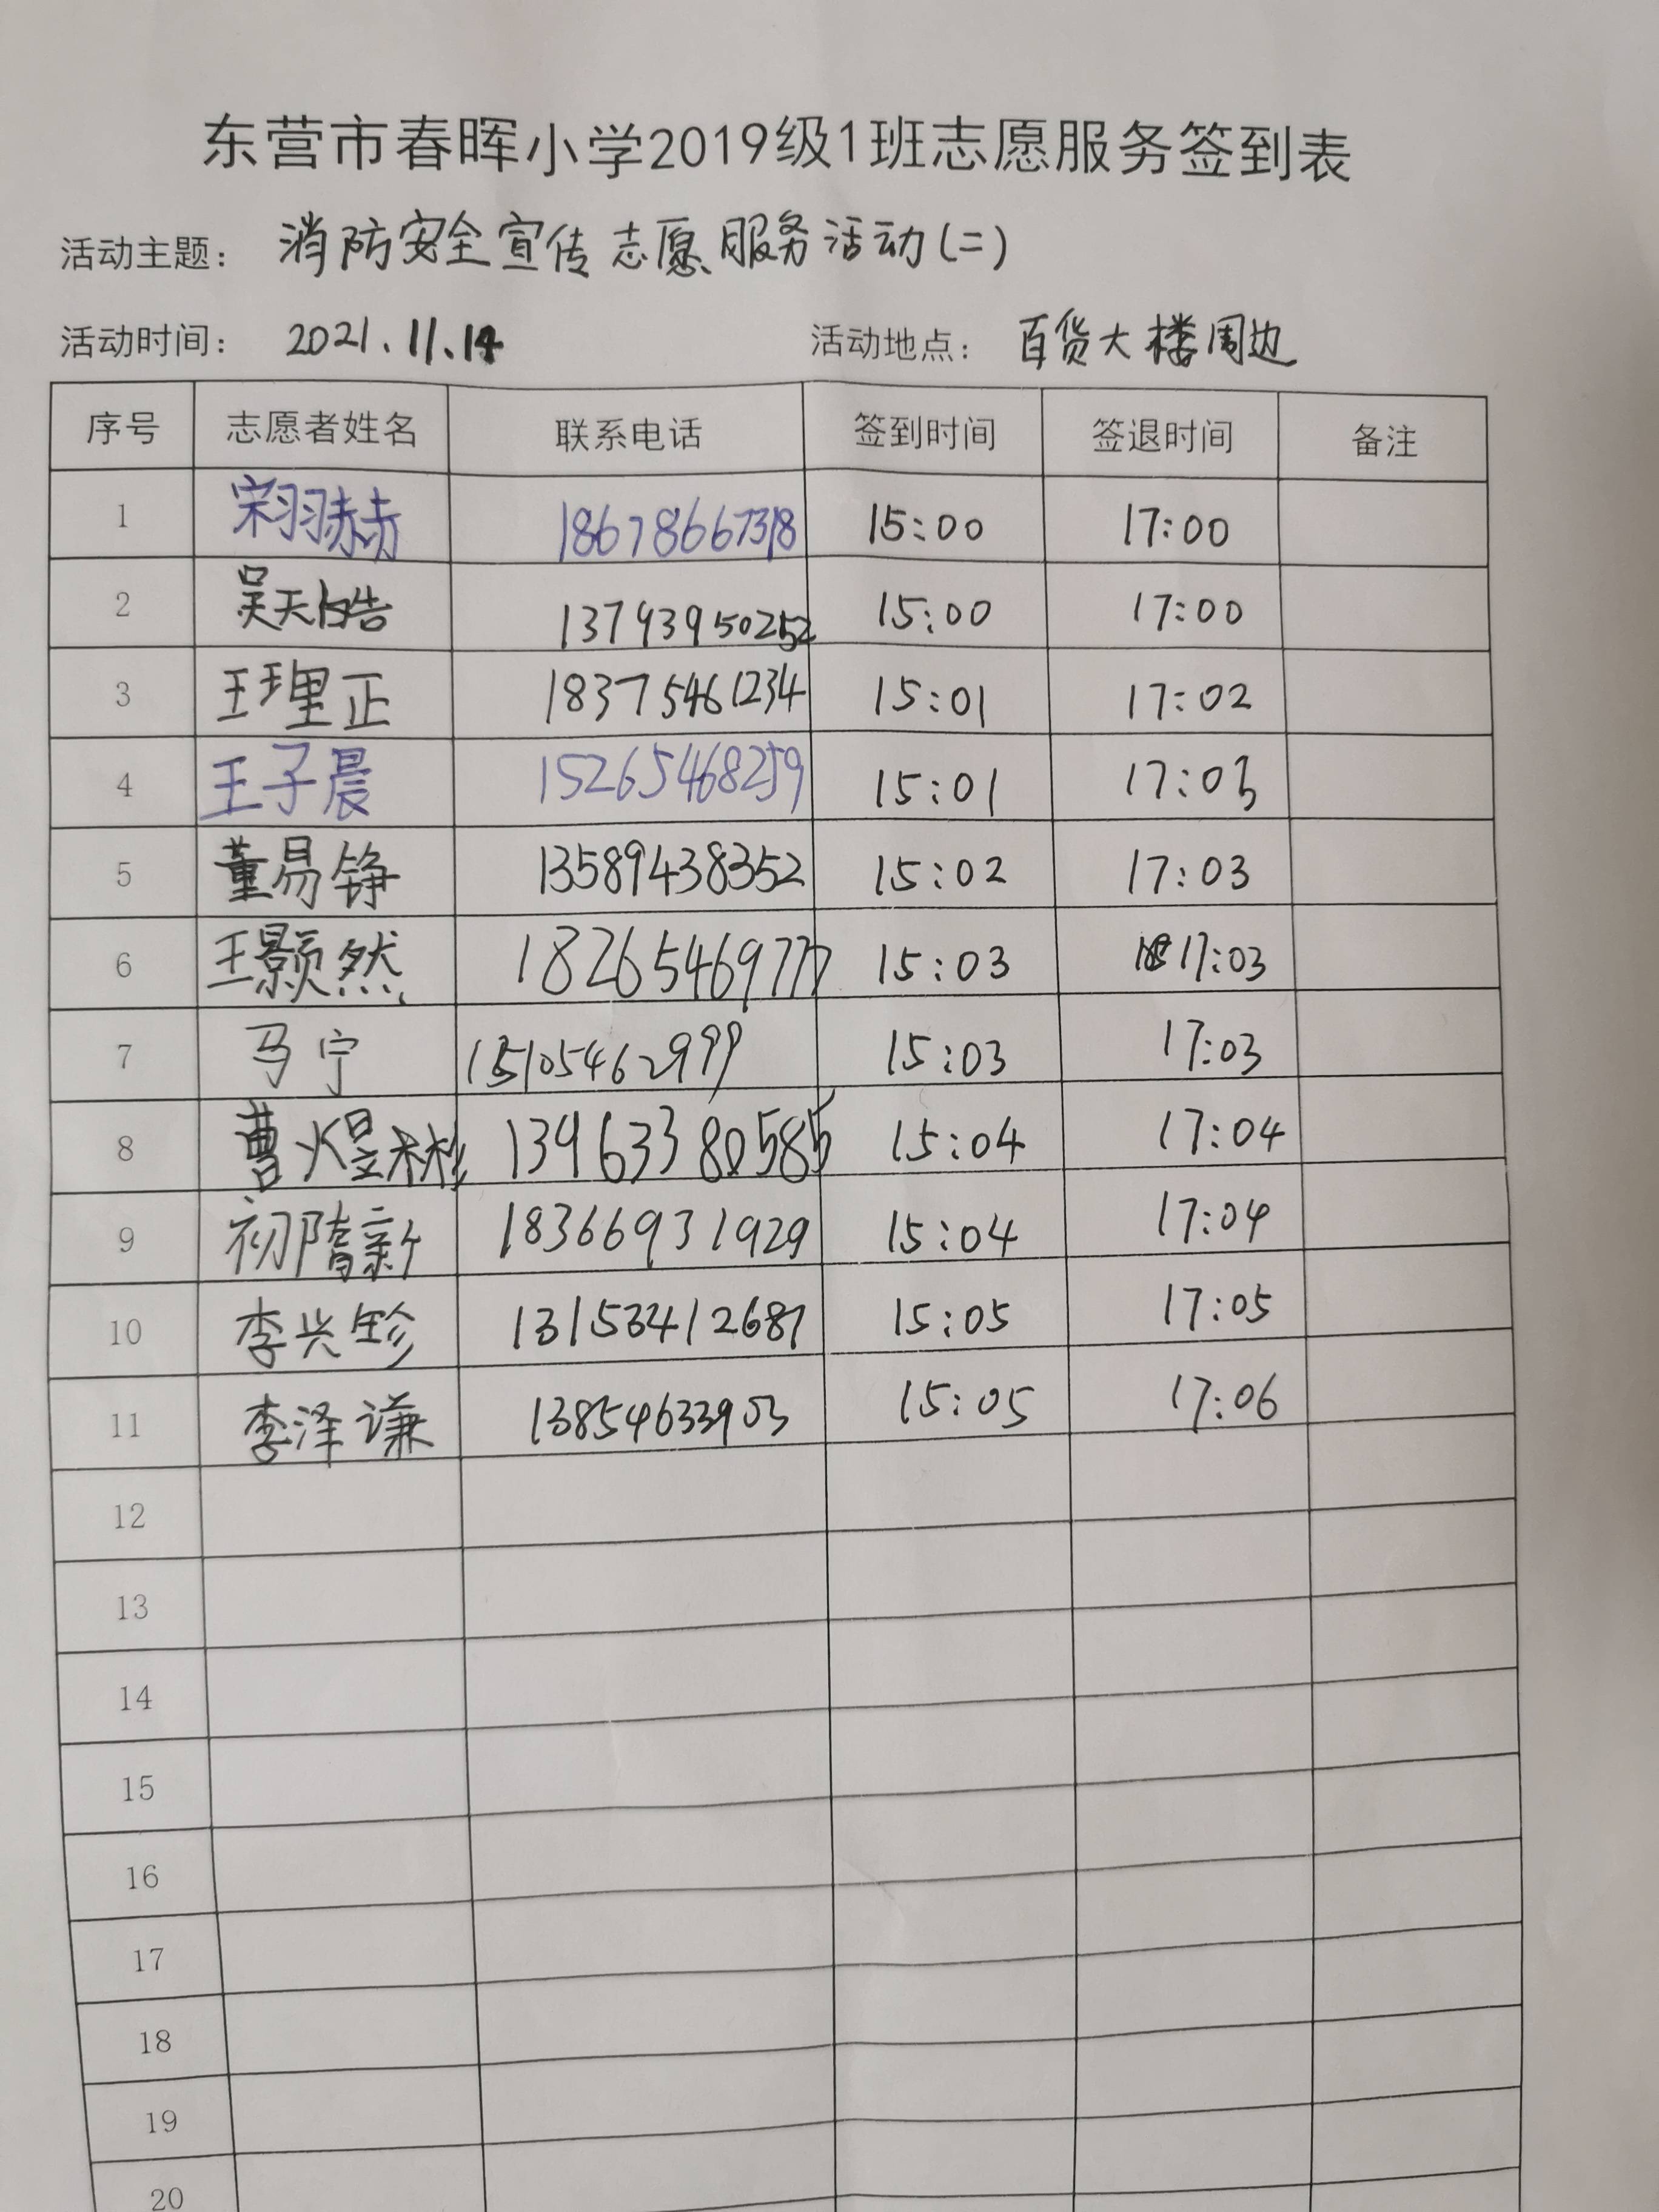 东营市春晖小学2019级1班志愿服务签到表
活动主题： 消防安全宣传志愿服务活动(二)
活动时间： 2021.11.14 活动地点： 百货大楼周边
序号 志愿者姓名 联系电话 签到时间 签退时间 备注
1 宋羽赫 18678667318 15:00 17:00
2 吴天皓 13793950252 15:00 17:00
3 王理正 18375461234 15:01 17:02
4 王子晨 15265468259 15:01 17:03
5 董易铮 13589438352 15:02 17:03
6 王颢然 18265469777 15:03 17:03
7 马宁 15105462999 15:03 17:03
8 曹煜彬 13963380585 15:04 17:04
9 初隋新 18366931929 15:04 17:04
10 李兴 13153412687 15:05 17:05
11 李泽谦 13854633903 15:05 17:06
12
13
14
15
16
17
18
19
20